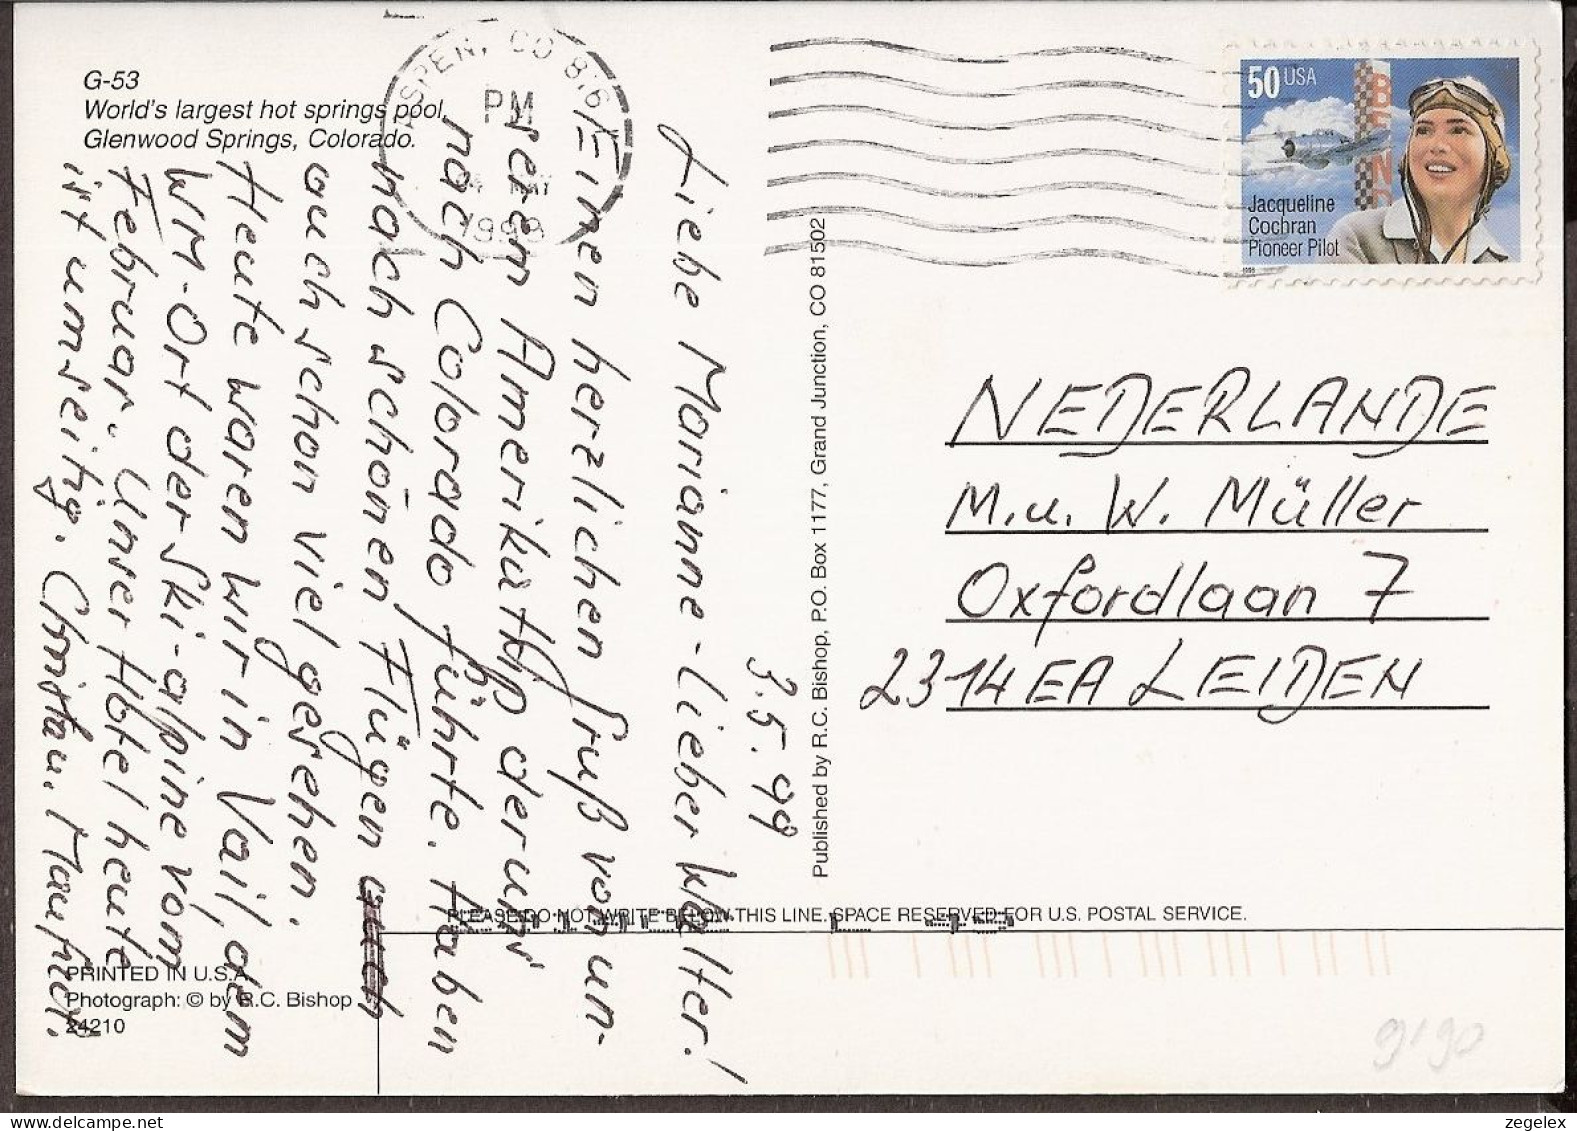 G-53
World's largest hot springs pool,
Glenwood Springs, Colorado.
ASPEN, CO 816
PM
MAY
1999
50 USA
Jacqueline
Cochran
Pioneer Pilot
1996
3.5.99
Liebe Marianne - Lieber Walter!
Einen herzlichen Gruß von un-
serem Amerikatrip der uns
nach Colorado führte. Haben
nach schönen Flügen auch
auch schon viel gesehen.
Heute waren wir in Vail, dem
WM-Ort der Ski-alpine vom
Februar. Unser Hotel heute
ist umseitig. Christa u. Manfred.
Published by R.C. Bishop, P.O. Box 1177, Grand Junction, CO 81502
NEDERLANDE
M. u. W. Müller
Oxfordlaan 7
2314 EA LEIDEN
PLEASE DO NOT WRITE BELOW THIS LINE. SPACE RESERVED FOR U.S. POSTAL SERVICE.
PRINTED IN U.S.A.
Photograph: © by R.C. Bishop
24210
9190
zegelex